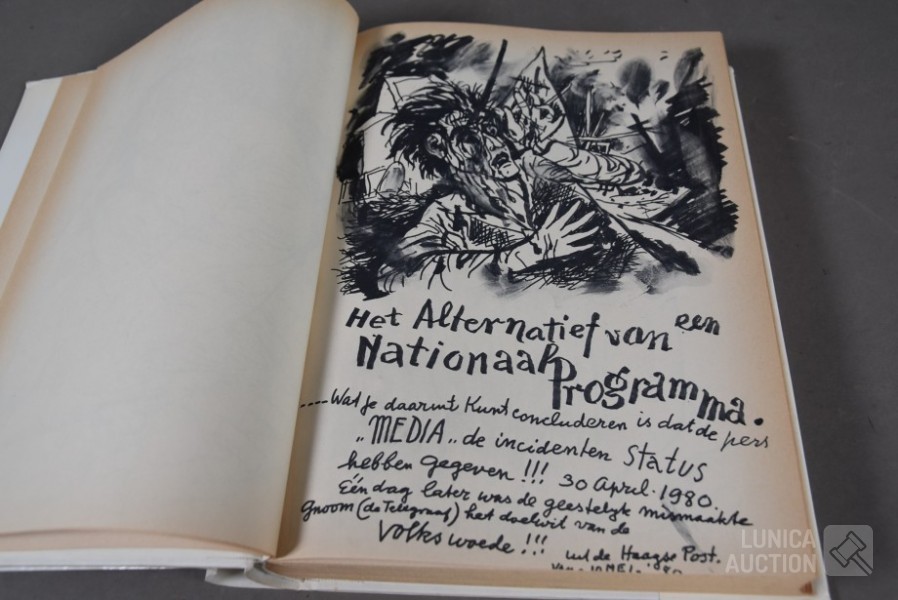 Het Alternatief van een
Nationaal Programma.
....Wat je daaruit kunt concluderen is dat de pers
„MEDIA„ de incidenten Status
hebben gegeven!!! 30 April. 1980.
Één dag later was de geestelyk mismaakte
gnoom (de Telegraaf) het doelwit van de
Volkswoede!!!
uit de Haagse Post.
van 10 MEI. '80
LUNICA
AUCTION